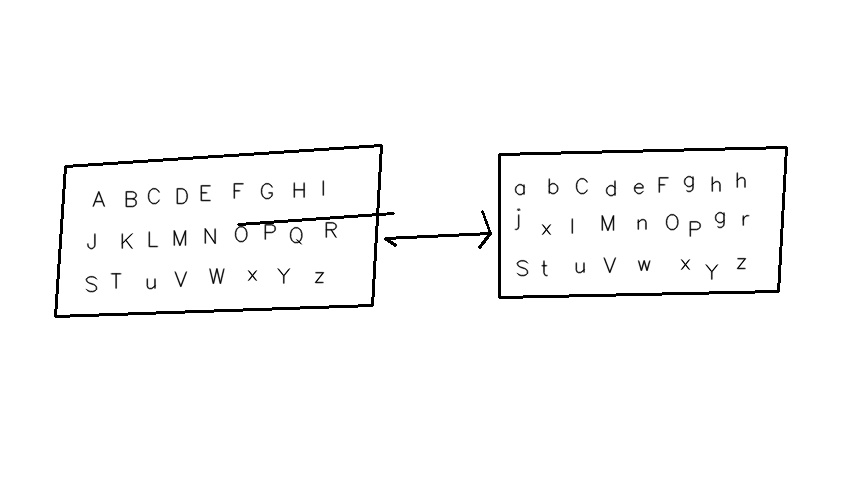 A B C D E F G H I
J K L M N O P Q R
S T u V W x Y z
a b C d e F g h h
j x l M n O P g r
S t u V w x Y z